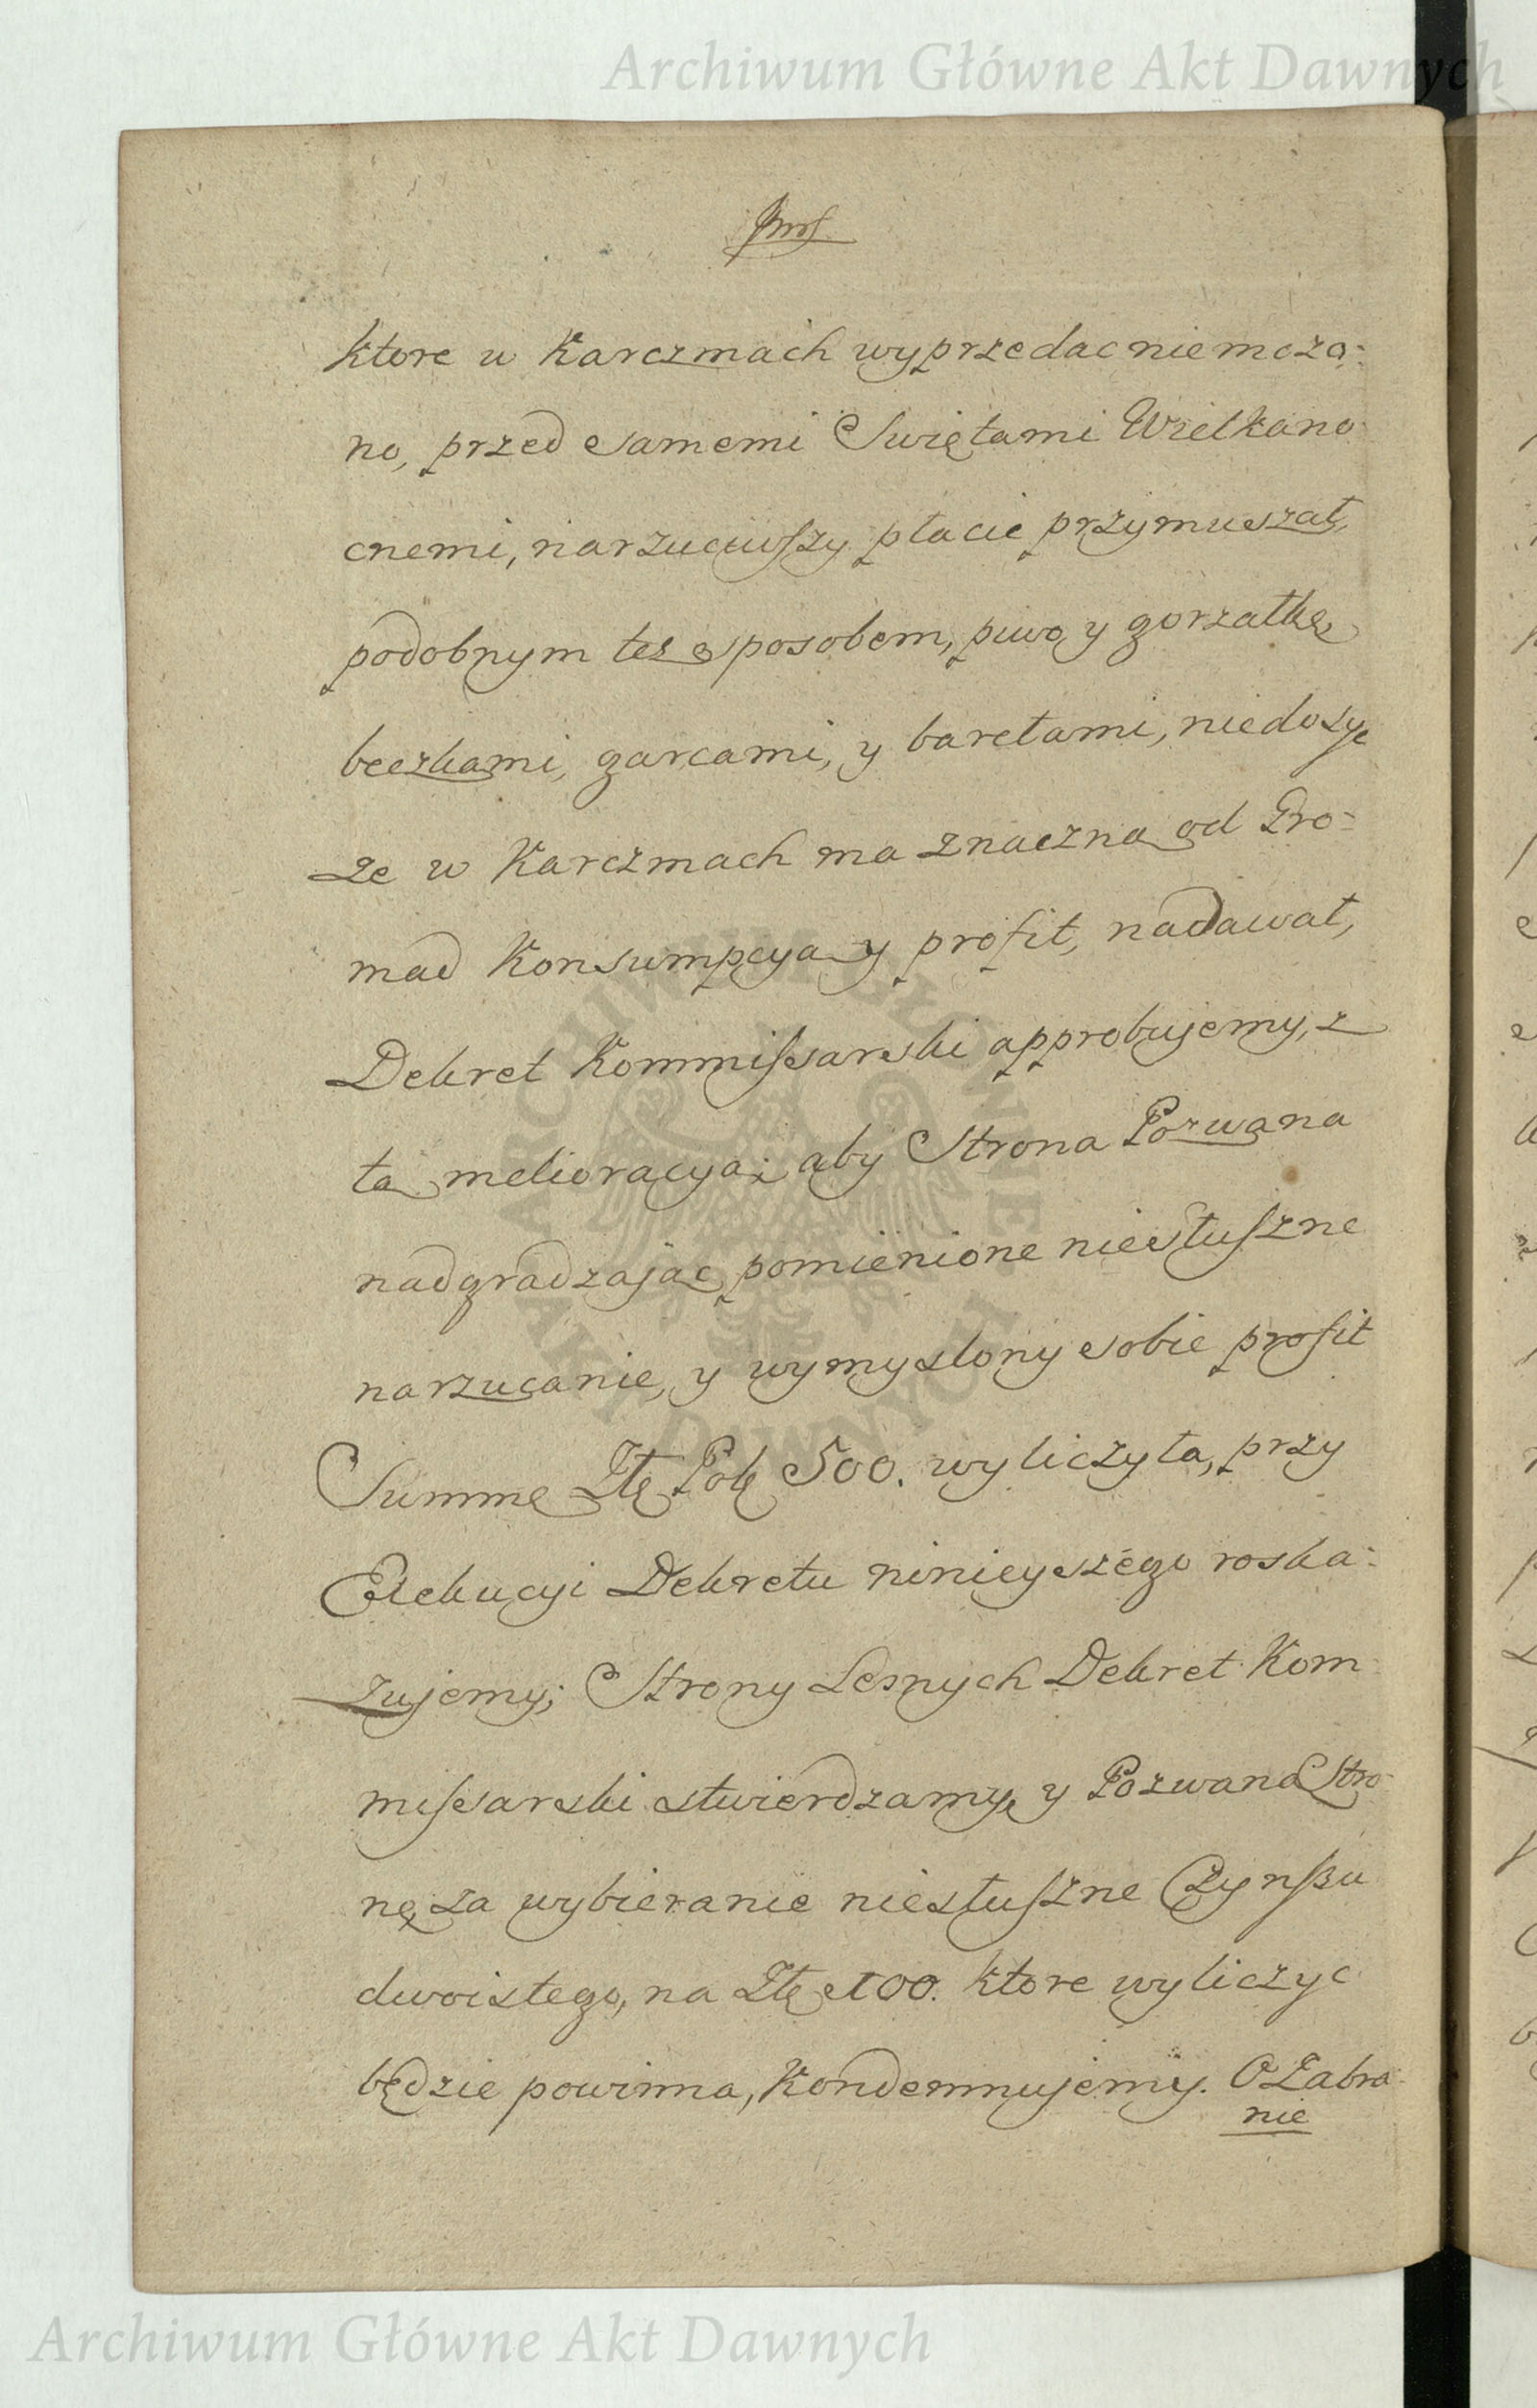 Archiwum Główne Akt Dawnych
ktore w Karczmach wyprzedac niemozo:
no, przed samemi Swiętami Wielkano
cnemi, narzuciwszy płacic przymuszał,
podobnym tez sposobem, piwo y gorzałkę
beczkami, garcami, y baretami, niedosyc
ze w Karczmach ma znaczną od Gro:
mad Konsumpcyą y profit, nadawał,
Dekret Kommissarski approbujemy, z
tą melioracyą; aby Strona Pozwana
nadgradzając pomienione niesłuszne
narzucanie, y wymyslony sobie profit
Summę Złł Polł 500. wyliczyła, przy
Exekucyi Dekretu ninieyszego roska:
zujemy; Strony Lesnych Dekret Kom
missarski stwierdzamy, y Pozwaną Stro
nę, za wybieranie niesłuszne Czynszu
dwoistego, na Złł 100. ktore wyliczyc
będzie powinna, Kondemnujemy. O Zabra
nie
ARCHIWUM GŁÓWNE AKT DAWNYCH
Archiwum Główne Akt Dawnych